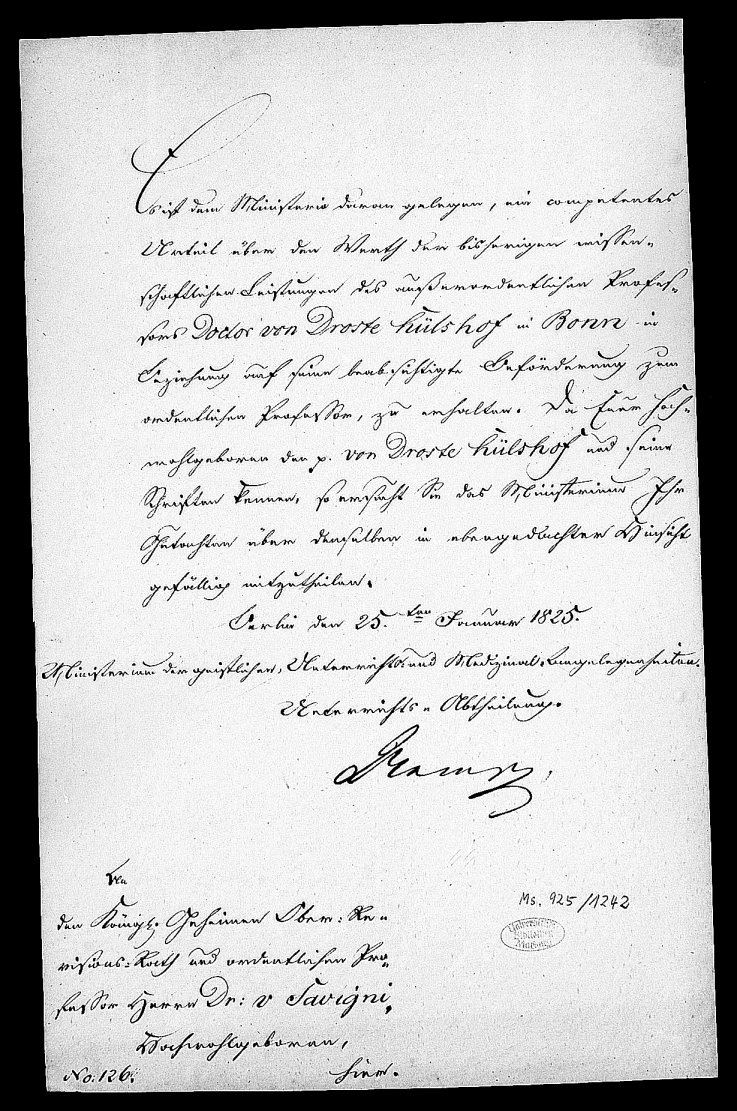 Es ist dem Ministerio daran gelegen, ein competentes
Urteil über den Werth der bisherigen wissen-
schaftlichen Leistungen des außerordentlichen Profes-
sors Doctor von Droste Hülshof in Bonn in
Beziehung auf seine beabsichtigte Beförderung zum
ordentlichen Professor, zu erhalten. Da Euer Hoch-
wohlgeboren den p. von Droste Hülshof und seine
Schriften kennen, so ersucht Sie das Ministerium Ihr
Gutachten über denselben in obengedachter Hinsicht
gefällig mitzutheilen.
Berlin den 25.ten Januar 1825.
Ministerium der geistlichen, Unterrichts und Medizinal-Angelegenheiten.
Unterrichts-Abtheilung.
An
den Königl. Geheimen Ober-Re-
visions-Rath und ordentlichen Pro-
fessor Herrn Dr: v Savigni,
Hochwohlgeboren,
hier.
No. 126.
Ms. 925/1242
Universitäts
Bibliothek
Marburg